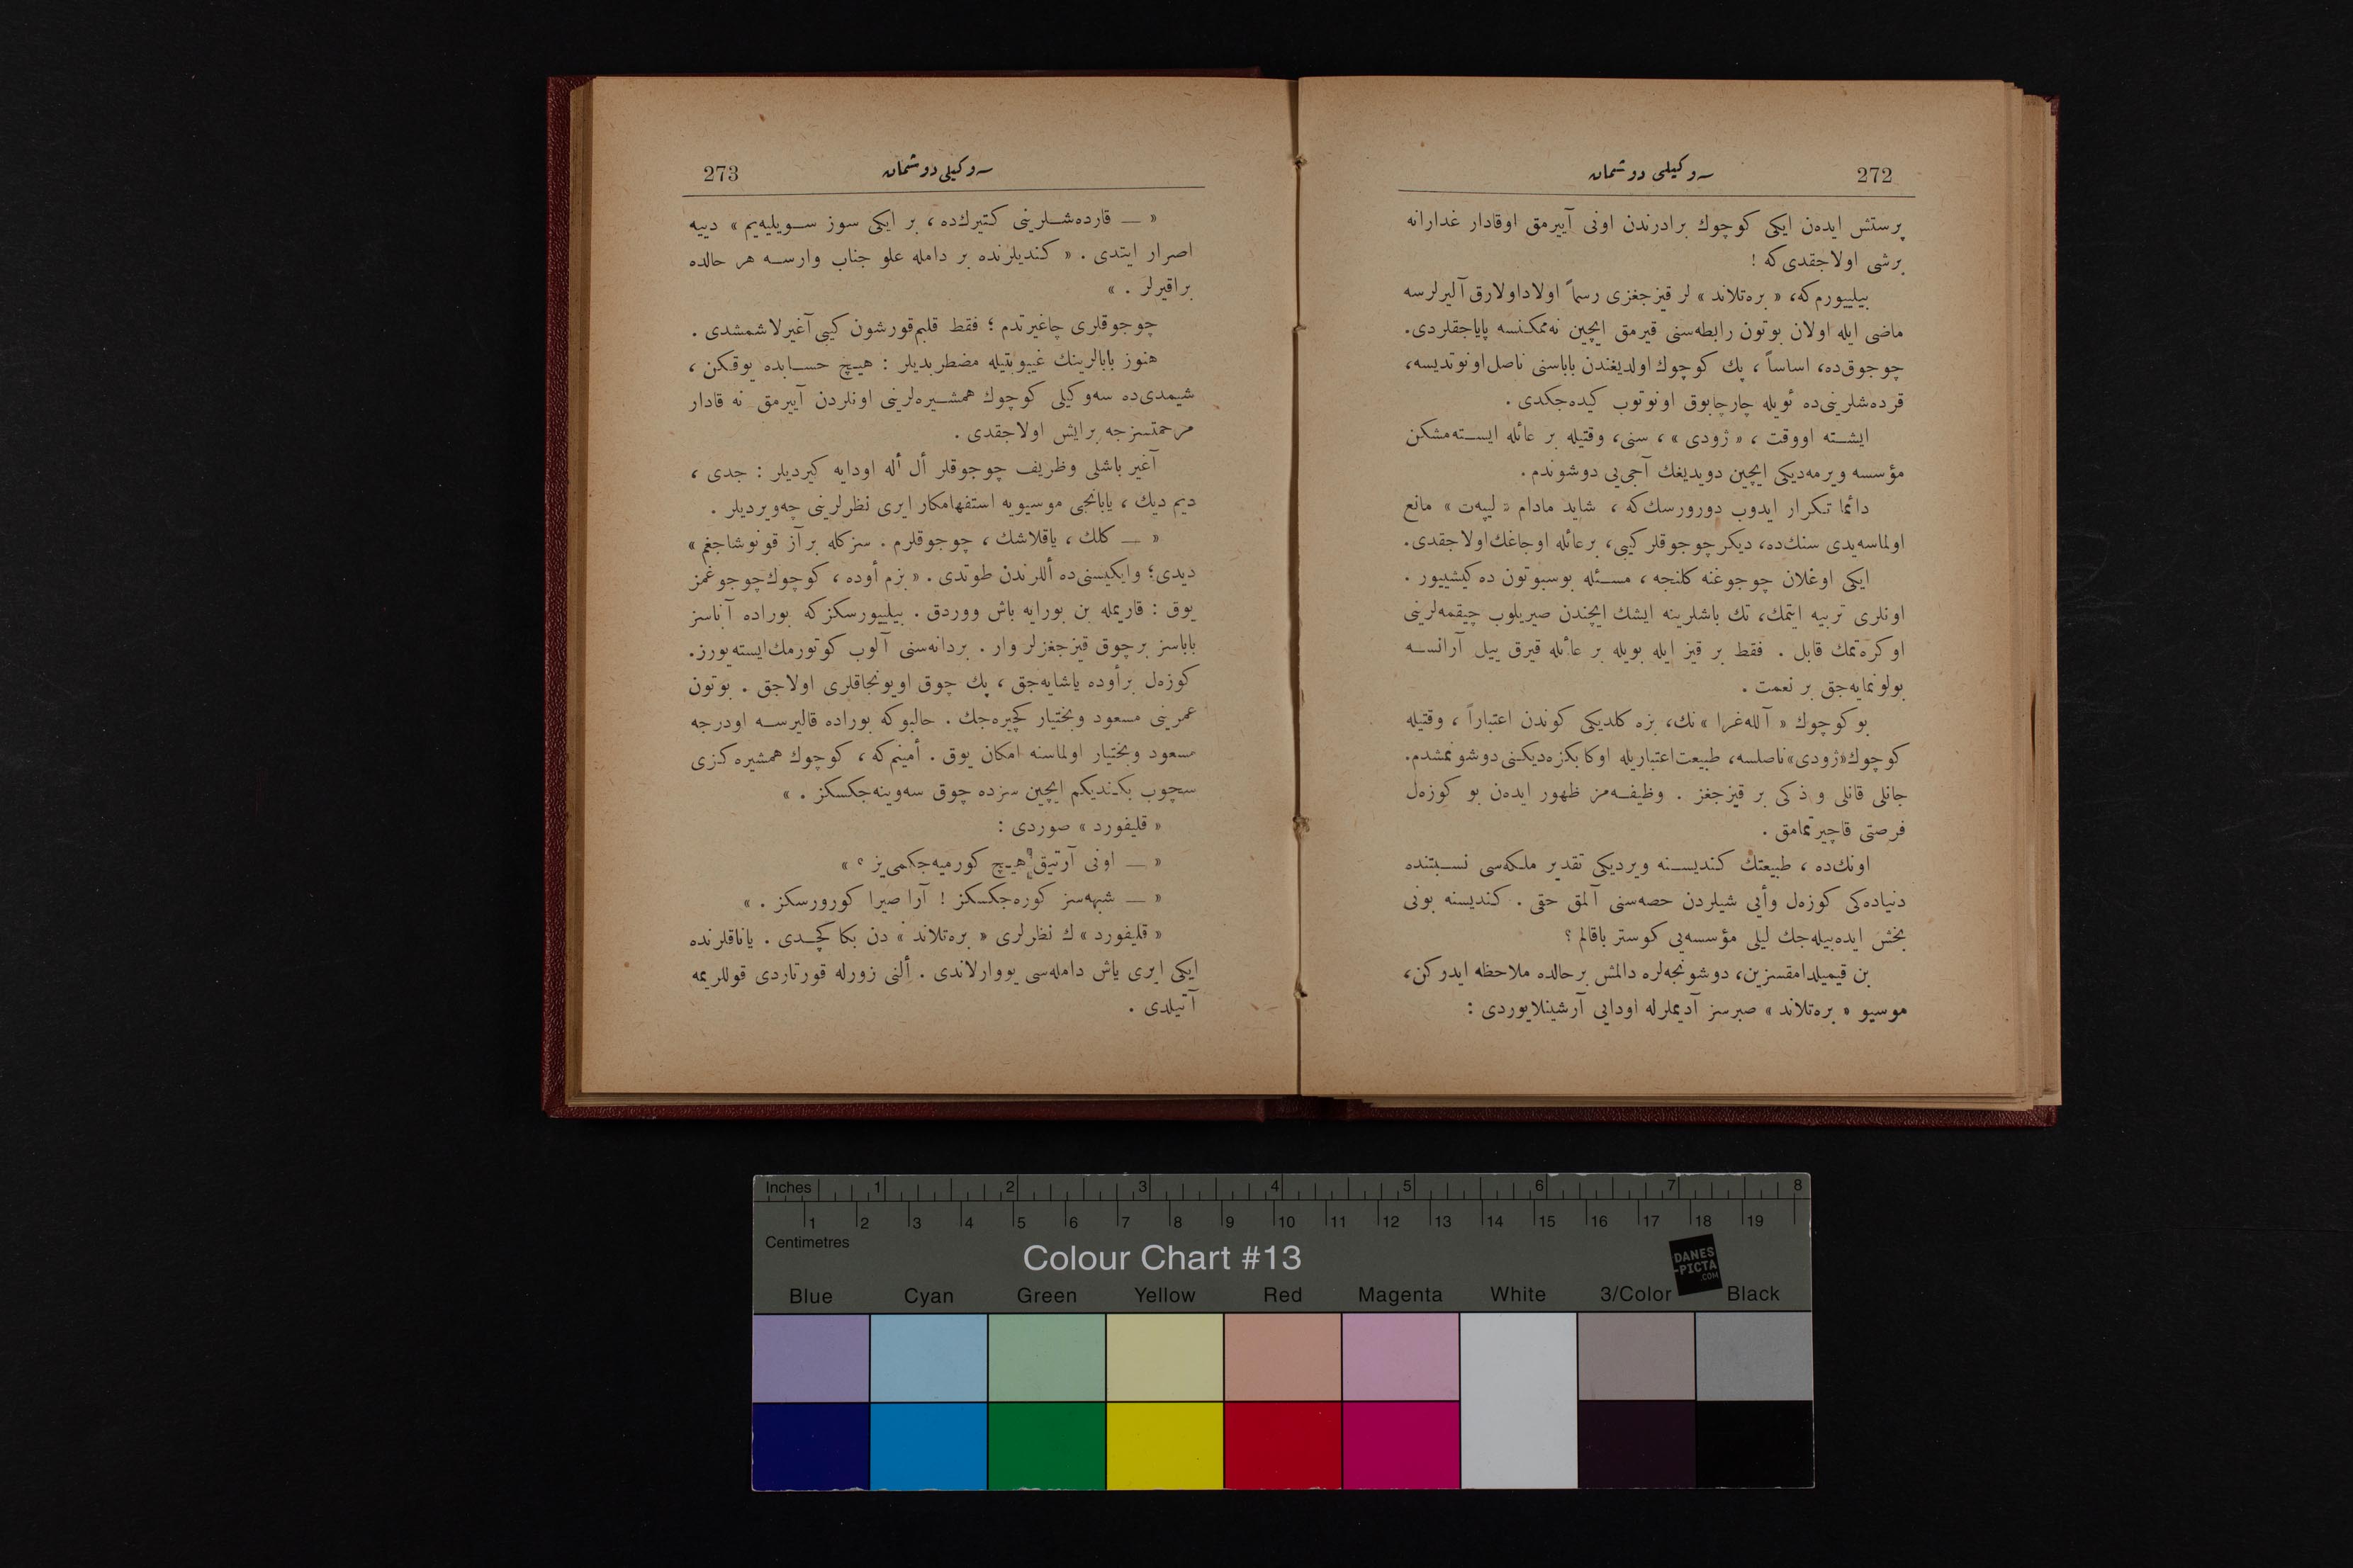 272
سـوكيلى دوشمان
پرستش ايده‌ن ايكى كوچوك برادرندن اونى آييرمق اوقادار غدارانه
برشى اولاجقدى كه !
بيلييورم كه، « بره‌تلاند » لر قيزجغزى رسماً اولاداولارق آليرلرسه
ماضى ايله اولان بوتون رابطه‌سنى قيرمق ايچين نه‌ممكنسه ياپاجقلردى.
چوجوق‌ده، اساساً ، پك كوچوك اولديغندن باباسنى ناصل اونوتديسه،
قرده‌شلرينى‌ده ئويله چارچابوق اونوتوب كيده‌جكدى .
ايشـته اووقت ، « ژودى » ، سنى، وقتيله بر عائله ايسـته‌مشكن
مؤسسه ويرمه‌ديكى ايچين دويديغك آجى‌يى دوشوندم .
دائما تكرار ايدوب دورورسك كه ، شايد مادام « ليپه‌ت » مانع
اولماسه‌يدى سنك‌ده، ديكر چوجوقلر كيبى، برعائله اوجاغك اولاجقدى.
ايكى اوغلان چوجوغنه كلنجه ، مسـئله بوسبوتون ده‌كيشييور .
اونلرى تربيه ايتمك، تك باشلرينه ايشك ايچندن صيريلوب چيقمه‌لرينى
اوكره‌تمك قابل . فقط بر قيز ايله بويله بر عائله قيرق ييل آرانسـه
بولونمايه‌جق بر نعمت .
بو كوچوك « آلله‌غرا » نك، بزه كلديكى كوندن اعتباراً ، وقتيله
كوچوك «ژودى» ناصلسه، طبيعت اعتباريله اوكا بكزه‌ديكنى دوشونمشدم.
جانلى قانلى و ذكى بر قيزجغز . وظيفـه‌مز ظهور ايده‌ن بو كوزه‌ل
فرصتى قاچيرتمامق .
اونك‌ده ، طبيعتك كنديسـنه ويرديكى تقدير ملكه‌سى نسـبتنده
دنياده‌كى كوزه‌ل وأيى شيلردن حصه‌سنى آلمق حقى . كنديسنه بونى
بخش ايده‌بيله‌جك ليلى مؤسسه‌يى كوستر باقالم ؟
بن قيميلدامقسزين، دوشونجه‌لره دالمش برحالده ملاحظه ايدركن،
موسيو « بره‌تلاند » صبرسز آديملرله اودايى آرشينلايوردى :
273
سـوكيلى دوشمان
« — قارده‌شـلرينى كتيرك‌ده ، بر ايكى سوز سـويليه‌يم » دييه
اصرار ايتدى . « كنديلرنده بر دامله علو جناب وارسـه هر حالده
براقيرلر . »
چوجوقلرى چاغيرتدم ؛ فقط قلبم قورشون كيبى آغيرلاشمشدى .
هنوز بابالرينك غيبوبتيله مضطربديلر : هيـچ حسـابده يوقكن ،
شيمدى‌ده سه‌وكيلى كوچوك همشـيره‌لرينى اونلردن آييرمق نه قادار
مرحمتسزجه برايش اولاجقدى .
آغير باشلى وظريف چوجوقلر أل أله اودايه كيرديلر : جدى ،
ديم ديك ، يابانجى موسيويه استفهامكار ايرى نظرلرينى چه‌ويرديلر .
« — كلك ، ياقلاشك ، چوجوقلرم . سزكله بر آز قونوشاجغم »
ديدى؛ وايكيسنى‌ده أللرندن طوتدى . « بزم أوده ، كوچوك چوجوغمز
يوق : قاريمله بن بورايه باش ووردق . بيلييورسكزكه بوراده آناسز
باباسز برچوق قيزجغزلر وار . بردانه‌سنى آلوب كوتورمك ايسته‌يورز.
كوزه‌ل برأوده ياشايه‌جق ، پك چوق اويونجاقلرى اولاجق . بوتون
عمرينى مسعود وبختيار كچيره‌جك . حالبوكه بوراده قاليرسـه اودرجه
مسعود وبختيار اولماسنه امكان يوق . أمينم كه ، كوچوك همشيره‌كزى
سچوب بكنديكم ايچين سزده چوق سه‌وينه‌جكسكز . »
« قليفورد » صوردى :
« — اونى آرتيق هيـچ كورميه‌جكمى‌يز ؟ »
« — شبهه‌سز كوره‌جكسكز ! آرا صيرا كورورسكز . »
« قليفورد » ك نظرلرى « بره‌تلاند » دن بكا كچـدى . ياناقلرنده
ايكى ايرى ياش دامله‌سى يووارلاندى . ألنى زورله قورتاردى قوللريمه
آتيلدى .
Inches 1 2 3 4 5 6 7 8
1 2 3 4 5 6 7 8 9 10 11 12 13 14 15 16 17 18 19
Centimetres
Colour Chart #13
DANES
-PICTA
.COM
Blue Cyan Green Yellow Red Magenta White 3/Color Black